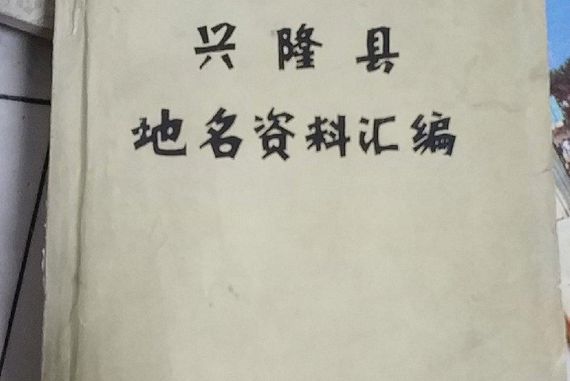 兴隆县
地名资料汇编